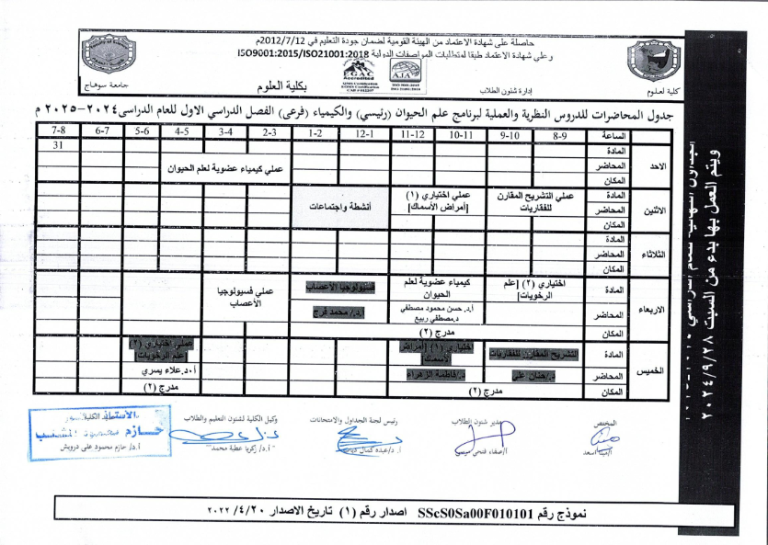 حاصلة على شهادة الاعتماد من الهيئة القومية لضمان جودة التعليم في 2012/7/12م
وعلى شهادة الاعتماد طبقا لمتطلبات المواصفات الدولية ISO9001:2015/ISO21001:2018
EGAC
AJA
كلية العلوم
إدارة شئون الطلاب
بكلية العلوم
جامعة سوهاج
جدول المحاضرات للدروس النظرية والعملية لبرنامج علم الحيوان (رئيسي) والكيمياء (فرعي) الفصل الدراسي الاول للعام الدراسي ٢٠٢٤-٢٠٢٥ م
الساعة 8-9 9-10 10-11 11-12 12-1 1-2 2-3 3-4 4-5 5-6 6-7 7-8
الاحد
المادة 31
المحاضر عملي كيمياء عضوية لعلم الحيوان
المكان
الاثنين
المادة عملي التشريح المقارن للفقاريات عملي اختياري (١) [أمراض الأسماك] أنشطة واجتماعات
المحاضر
المكان
الثلاثاء
المادة
المحاضر
المكان
الاربعاء
المادة اختياري (٢) [علم الرخويات] كيمياء عضوية لعلم الحيوان فسيولوجيا الأعصاب عملي فسيولوجيا الأعصاب
المحاضر أ.د. حسن محمود مصطفي د.مصطفي ربيع أ.د/ محمد فرج
المكان مدرج (٢)
الخميس
المادة التشريح المقارن للفقاريات اختياري (١) [أمراض الأسماك] عملي اختياري (٢) [علم الرخويات]
المحاضر د/حنان علي د/فاطمة الزهراء أ.د.علاء يسري
المكان مدرج (٢) مدرج (٢)
ويتم العمل بها بدء من السبت ٢٠٢٤/٩/٢٨
المختص
مدير شئون الطلاب
رئيس لجنة الجداول والامتحانات
وكيل الكلية لشئون التعليم والطلاب
أ/صفاء فتحي
أ.د/عبده كمال
أ.د/ زكريا عطية محمد
أ.د/ حازم محمود علي درويش
نموذج رقم SScS0Sa00F010101 اصدار رقم (١) تاريخ الاصدار ٢٠٢٢/٤/٢٠